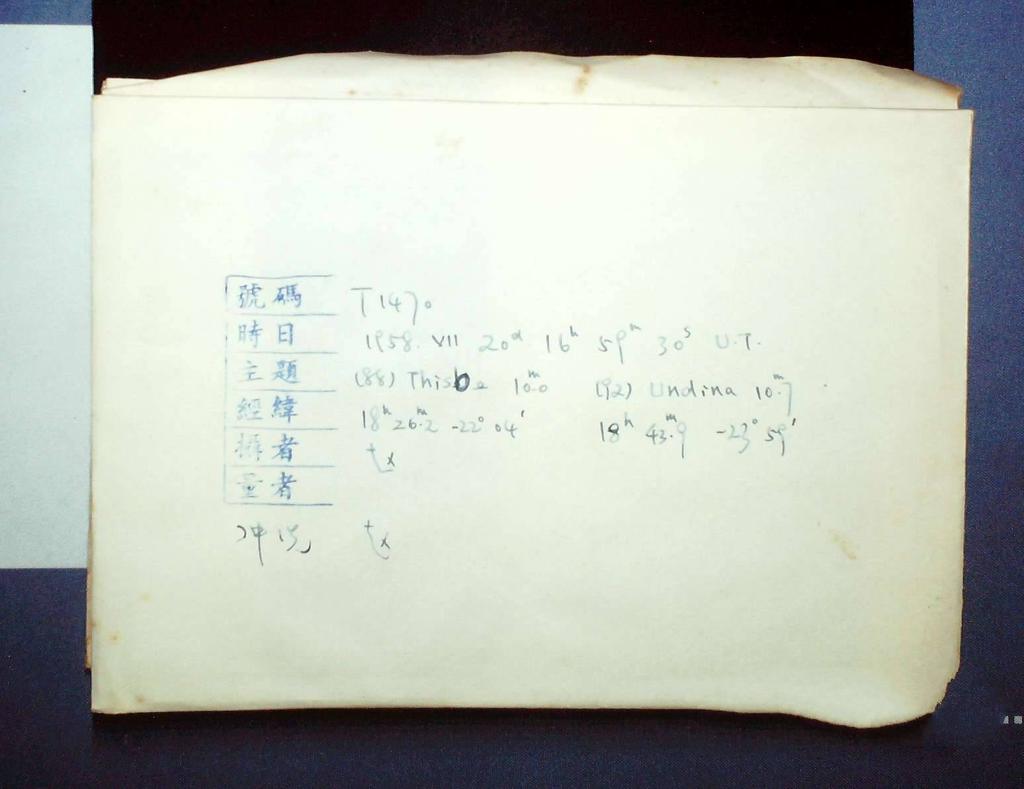 號碼 T1470
時日 1958. VII 20ᵈ 16ʰ 59ᵐ 30ˢ U.T.
主題 (88) Thisbe 10ᵐ.0 (92) Undina 10ᵐ.7
經緯 18ʰ 26ᵐ.2 -22° 04′ 18ʰ 43ᵐ.9 -23° 59′
攝者
量者
冲洗